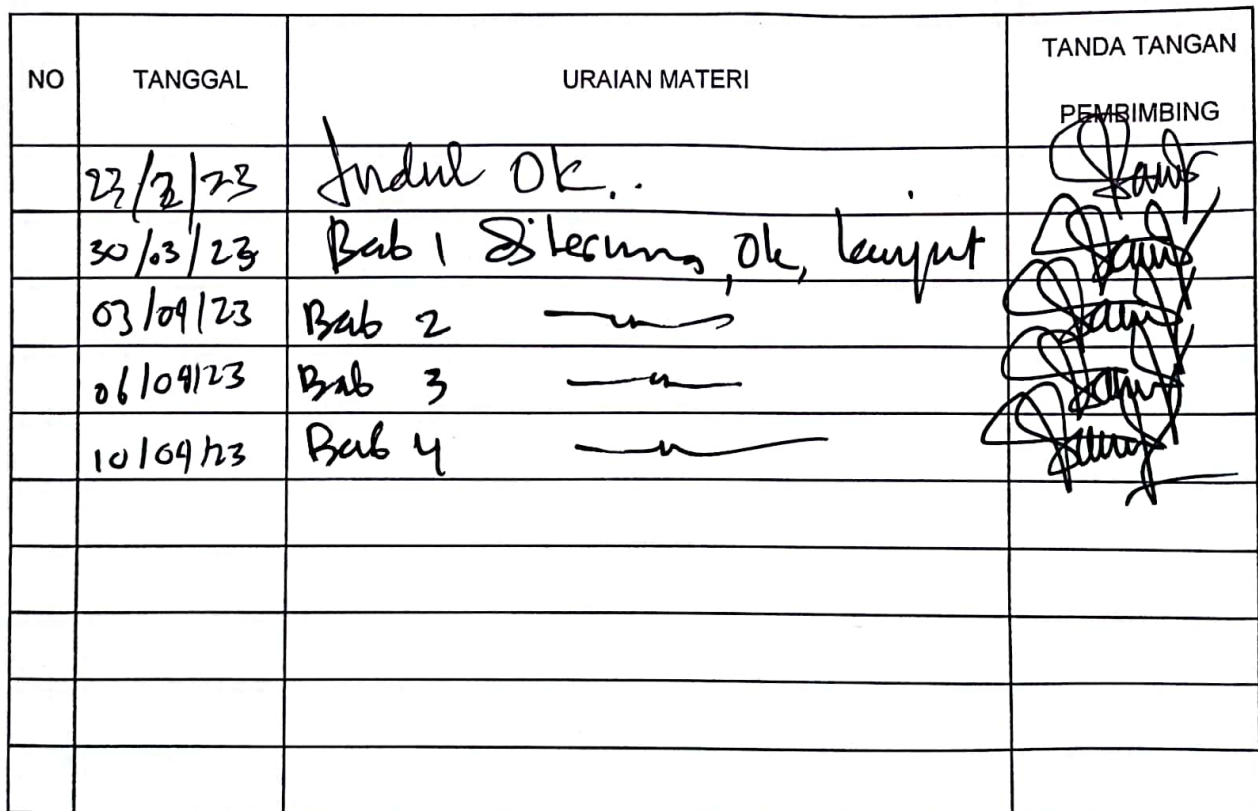 NO TANGGAL URAIAN MATERI TANDA TANGAN PEMBIMBING
23/2/23 Judul Ok..
30/03/23 Bab 1 diterima, Ok, lanjut
03/04/23 Bab 2 〃
06/04/23 Bab 3 〃
10/04/23 Bab 4 〃